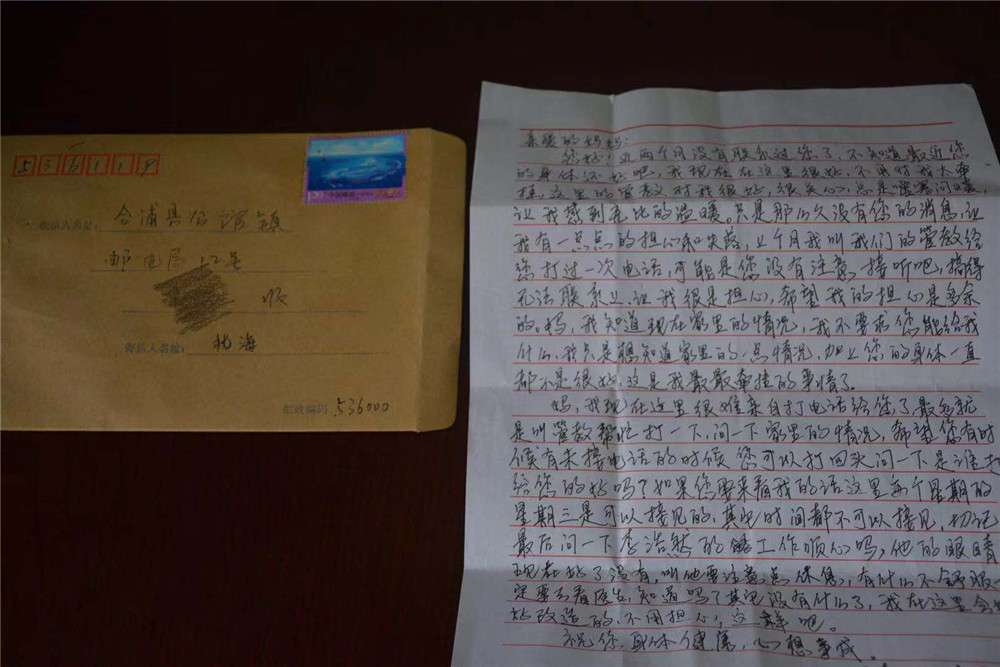 536119
收信人地址:
合浦县白沙镇
邮电局12号
收
寄信人地址:
北海
邮政编码 536000
1.20
中国邮政
亲爱的妈妈:
您好!近两个月没有联系过您了,不知道最近您
的身体还好吧,我现在在这里很好,不用对我太牵
挂,这里的管教对我很好,很关心,总是嘘寒问暖,
让我感到无比的温暖,只是那么久没有您的消息,让
我有一点点的担心和失落,上个月我叫我们的管教给
您打过一次电话,可能是您没有注意接听吧,搞得
无法联系上,让我很是担心,希望我的担心是多余
的。妈,我知道现在家里的情况,我不要求您能给我
什么,我只是想知道家里的一点情况,加上您的身体一直
都不是很好,这是我最最牵挂的事情了。
妈,我现在这里很难亲自打电话给您了,最多就
是叫管教帮忙打一下,问一下家里的情况,希望您有时
候有未接电话的时候您可以打回头问一下是谁打
给您的好吗?如果您要来看我的话这里每个星期的
星期三是可以接见的,其它时间都不可以接见,切记
最后问一下李浩然的工作顺心吗,他的眼睛
现在好了没有,叫他要注意点休息,有什么不舒服一
定要去看医生,知道吗?其它没有什么了,我在这里会
好改造的,不用担心,这样吧。
祝您,身体健康,心想事成。